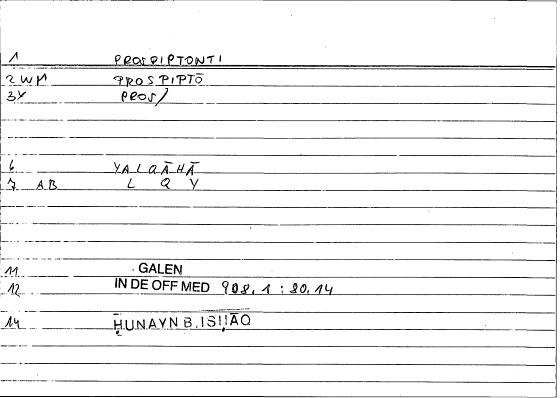 1 PROSPIPTONTI
2 WM PROSPIPTŌ
3Y PROS/
6 YALQĀHĀ
7 AB L Q Y
11 GALEN
12 IN DE OFF MED 908,1 : 30.14
14 ḤUNAYN B. ISḤĀQ